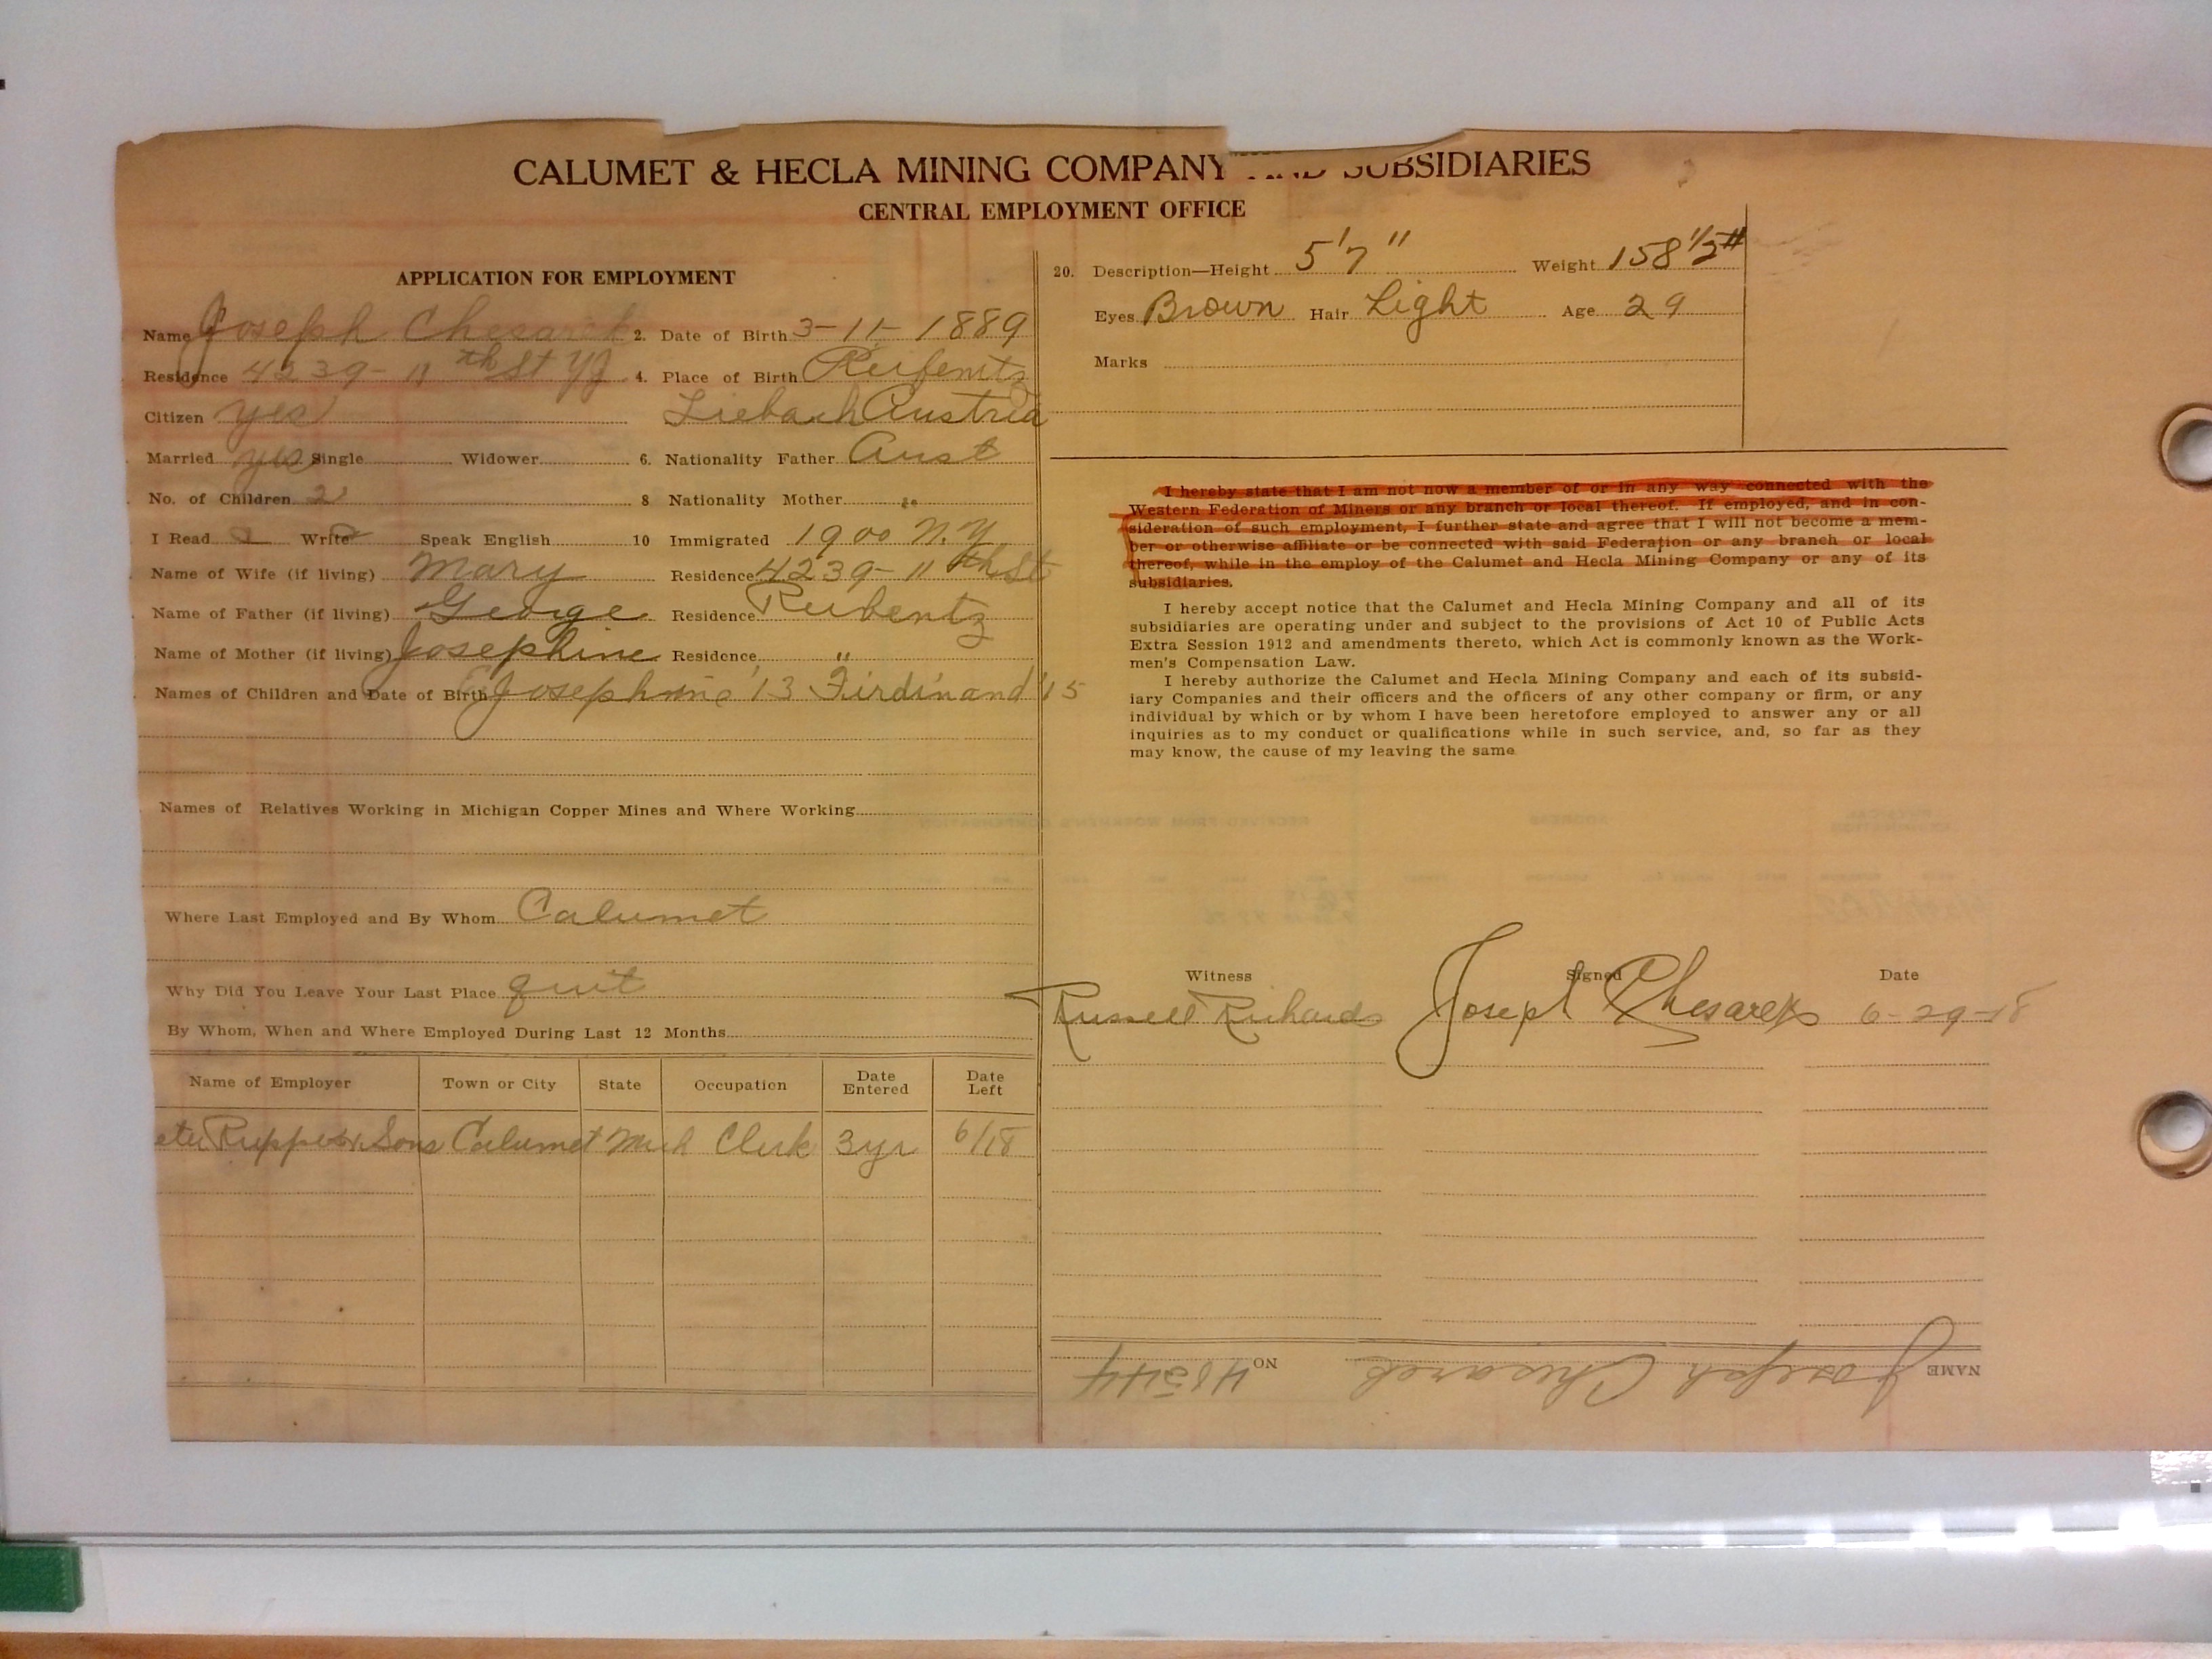 CALUMET & HECLA MINING COMPANY AND SUBSIDIARIES
CENTRAL EMPLOYMENT OFFICE
APPLICATION FOR EMPLOYMENT
Name Joseph Chesarek 2. Date of Birth 3-11-1889
Residence 4239-11th St YJ 4. Place of Birth Reifenitz
Citizen yes Liebach Austria
Married yes Single Widower 6. Nationality Father Aust
No. of Children 2 8 Nationality Mother "
I Read Write Speak English 10 Immigrated 1900 N.Y
Name of Wife (if living) Mary Residence 4239-11th St
Name of Father (if living) George Residence Reibentz
Name of Mother (if living) Josephine Residence "
Names of Children and Date of Birth Josephine '13 Firdinand '15
Names of Relatives Working in Michigan Copper Mines and Where Working
Where Last Employed and By Whom Calumet
Why Did You Leave Your Last Place quit
By Whom, When and Where Employed During Last 12 Months
Name of Employer Town or City State Occupation Date Entered Date Left
eter Ruppe & Sons Calumet Mich Clerk 3yr 6/18
20. Description—Height 5'7" Weight 158 1/2#
Eyes Brown Hair Light Age 29
Marks
I hereby state that I am not now a member of or in any way connected with the
Western Federation of Miners or any branch or local thereof. If employed, and in con-
sideration of such employment, I further state and agree that I will not become a mem-
ber or otherwise affiliate or be connected with said Federation or any branch or local
thereof, while in the employ of the Calumet and Hecla Mining Company or any of its
subsidiaries.
I hereby accept notice that the Calumet and Hecla Mining Company and all of its
subsidiaries are operating under and subject to the provisions of Act 10 of Public Acts
Extra Session 1912 and amendments thereto, which Act is commonly known as the Work-
men's Compensation Law.
I hereby authorize the Calumet and Hecla Mining Company and each of its subsid-
iary Companies and their officers and the officers of any other company or firm, or any
individual by which or by whom I have been heretofore employed to answer any or all
inquiries as to my conduct or qualifications while in such service, and, so far as they
may know, the cause of my leaving the same
Witness Signed Date
Russell Richards Joseph Chesarek 6-29-18
NAME Joseph Chesarek NO 48544